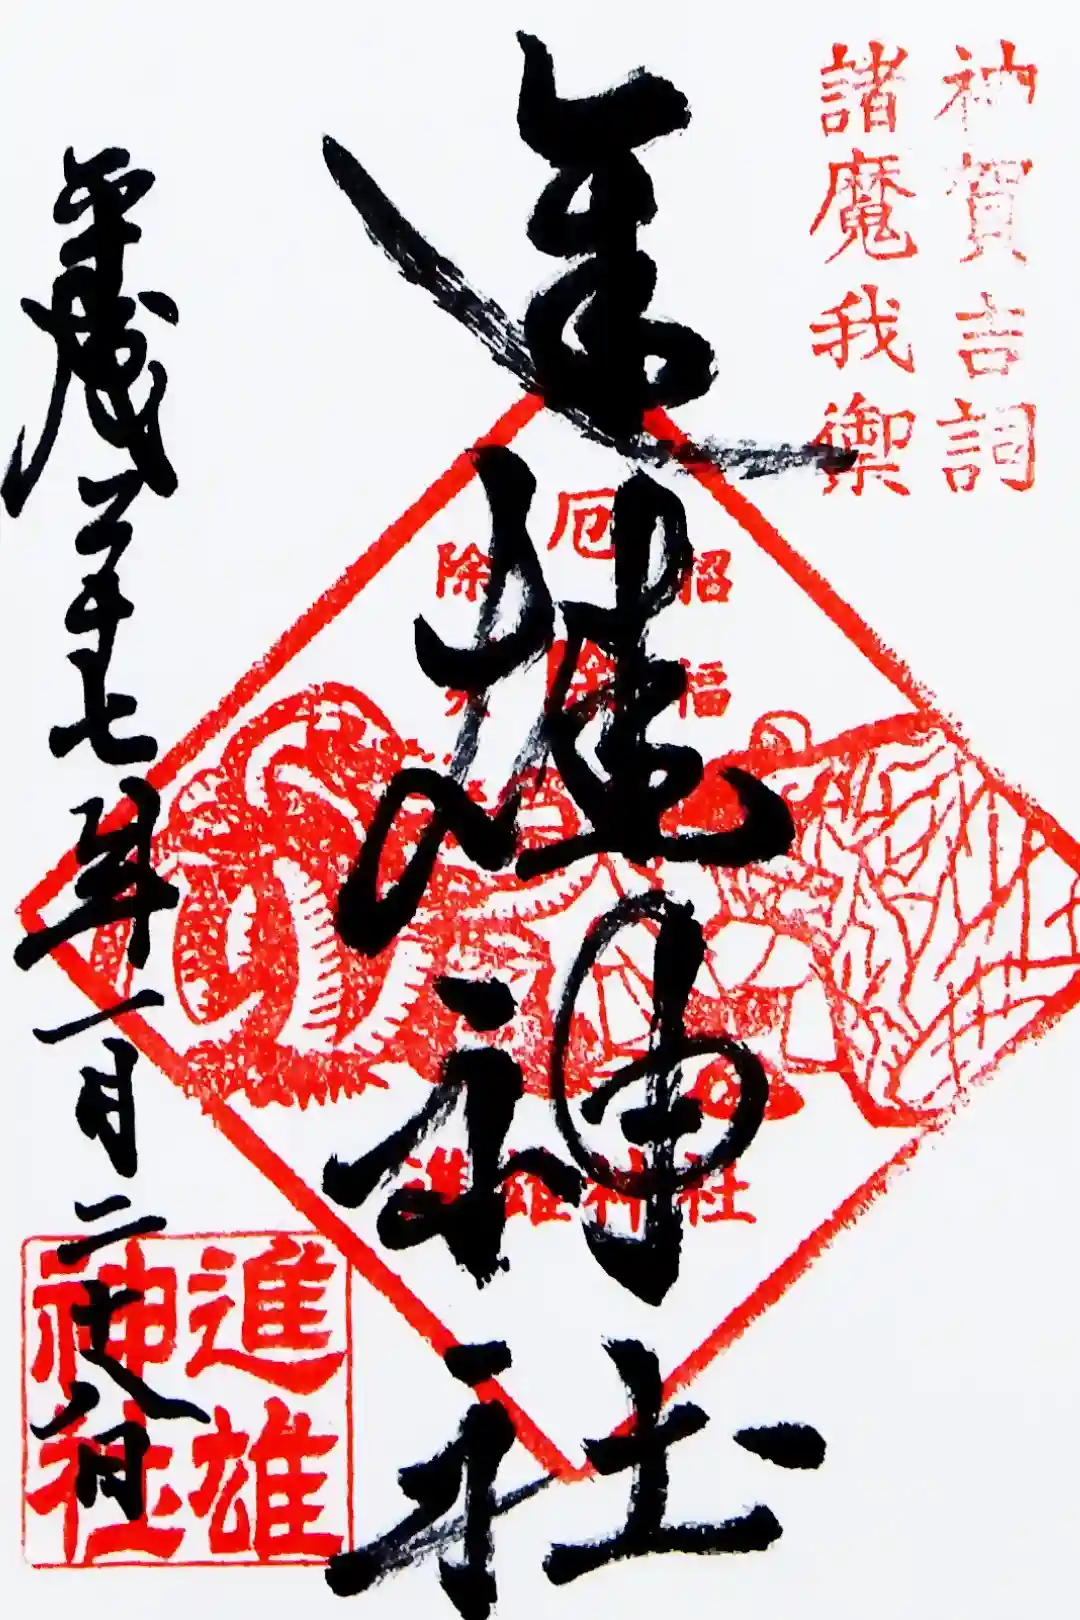 神賀吉詞
諸魔我禦
進雄神社
厄除
招福
除災
進雄神社
平成二十七年一月二十八日
進雄神社